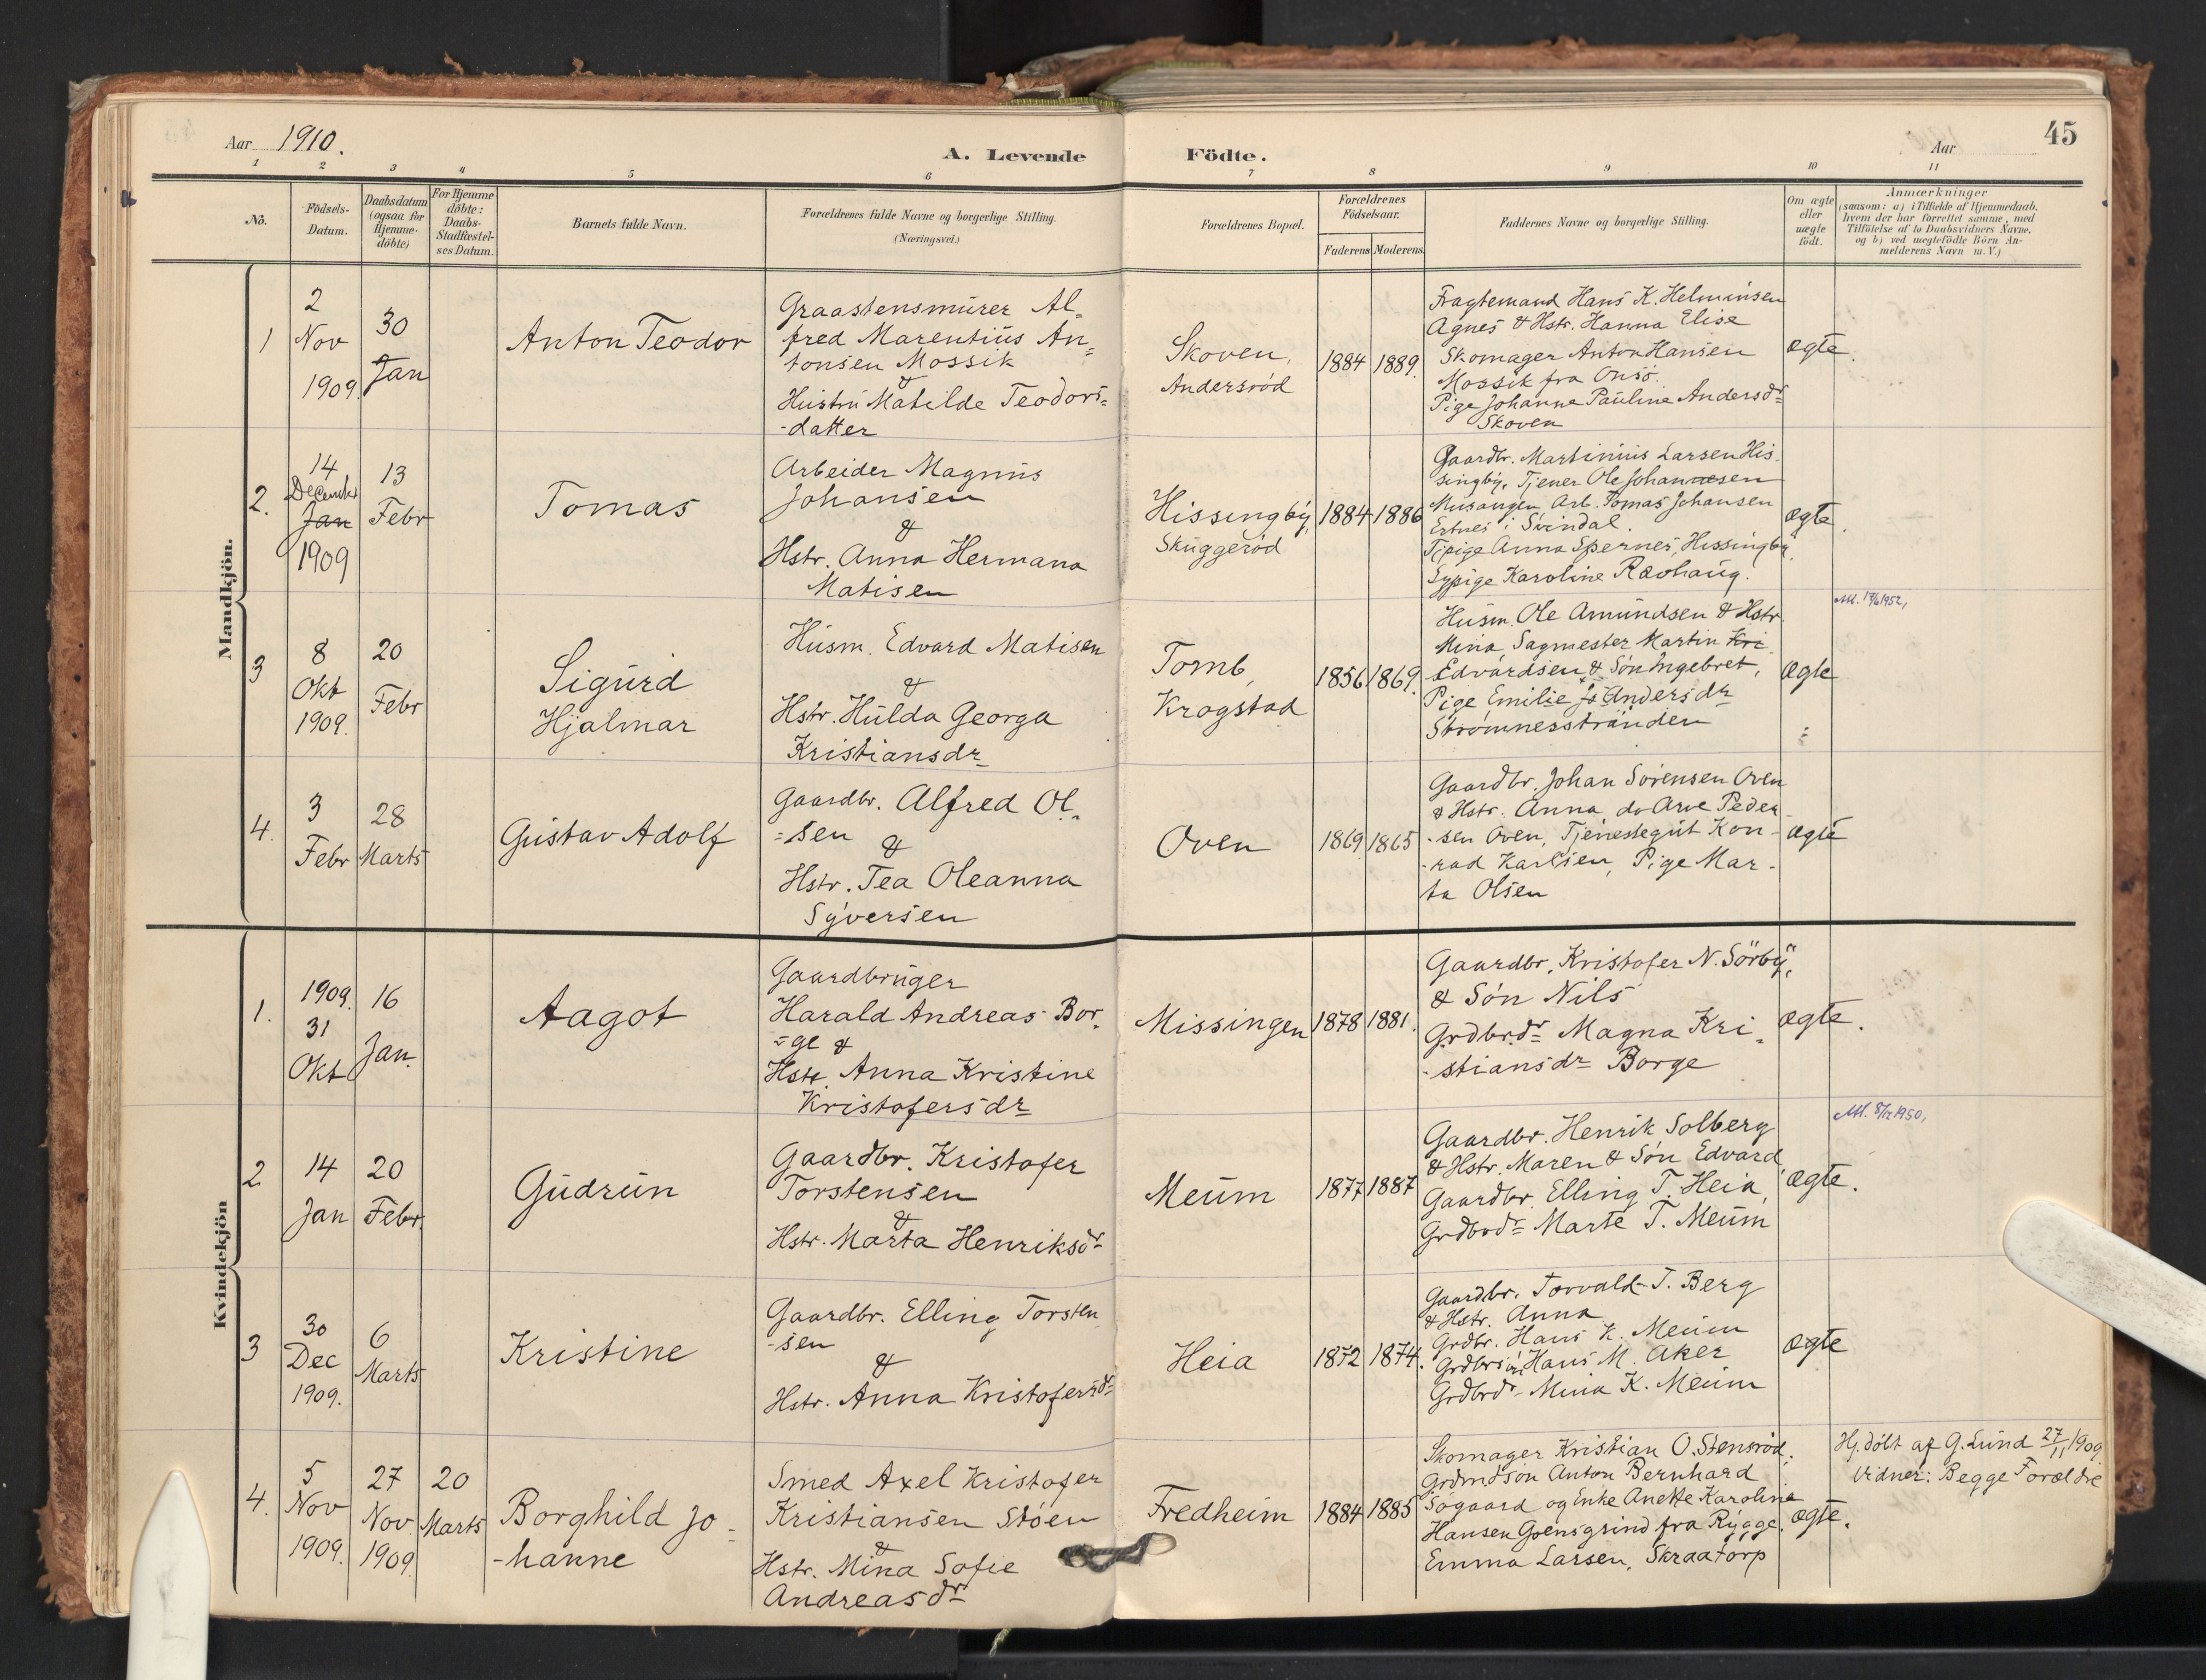 Aar 1910.
A. Levende Födte.
Aar
45
1 2 3 4 5 6 7 8 9 10 11
No.
Födsels-Datum.
Daabsdatum (ogsaa for Hjemme-döbte)
For Hjemme döbte: Daabs-Stadfæstel-ses Datum.
Barnets fulde Navn.
Forældrenes fulde Navne og borgerlige Stilling.
(Næringsvei.)
Forældrenes Bopæl.
Forældrenes Födselsaar.
Faderens Moderens
Faddernes Navne og borgerlige Stilling.
Om ægte eller uægte födt.
Anmærkninger
(saasom: a) i Tilfælde af Hjemmedaab,
hvem der har forrettet samme, med
Tilföielse af to Daabsvidners Navne,
og b) ved uægtefödte Börn An-
melderens Navn m.V.)
Mandkjön.
1
2 Nov 1909
30 Jan
Anton Teodor
Graastensmurer Al=
fred Marentius An=
tonsen Mossik
&
Hustru Matilde Teodors=
-datter
Skoven,
Andersröd
1884 1889.
Fragtemand Hans K. Helminsen
Agnes & Hstr. Hanna Elise
Skomager Anton Hansen
Mossik fra Onsö.
Pige Johanne Pauline Andersdr
Skoven
ægte.
2.
14 December Jan 1909
13 Febr
Tomas
Arbeider Magnus
Johansen
&
Hstr. Anna Hermana
Matisen
Hissingby,
Skuggeröd
1884 1886
Gaardbr. Martinius Larsen His-
singby, Tjener Ole Johannesen
Musangen Arb. Tomas Johansen
i Svindal.
Tjpige Anna Spernes, Hissingby,
Sypige Karoline Ravhaug.
ægte.
3
8 Okt 1909.
20 Febr
Sigurd
Hjalmar
Husm. Edvard Matisen
&
Hstr. Hulda Georga
Kristiansdr
Tomb,
Krogstad
1856 1869.
Husm. Ole Amundsen & Hstr
Mina, Sagmester Martin Kri
Edvardsen & Sön Ingebret,
Pige Emilie Andersdr
Strömnesstranden
ægte
4.
3 Febr
28 Marts
Gustav Adolf
Gaardbr. Alfred Ol=
=sen
&
Hstr. Tea Oleanna
Syversen
Oven
1869 1865
Gaardbr. Johan Sörensen Oven
& Hstr. Anna, do Arve Peder
-sen Oven, Tjenestegut Kon-
-rad Karlsen, Pige Mar-
ta Olsen
ægte
Kvindekjön
1.
1909. 31 Okt
16 Jan.
Aagot
Gaardbruger
Harald Andreas Bor=
=ge &
Hstr. Anna Kristine
Kristofersdr
Missingen
1878 1881.
Gaardbr. Kristofer N. Sörby,
& Sön Nils
Grdbr.dr Magna Kri=
-stiansdr Borge
ægte.
2
14 Jan
20 Febr.
Gudrun
Gaardbr. Kristofer
Torstensen
&
Hstr. Marta Henriksdr
Meum
1877 1887
Gaardbr. Henrik Solberg
& Hstr. Maren & Sön Edvard,
Gaardbr. Elling T. Heia,
Grdbrdr Marte T. Meum
ægte.
3
30 Dec 1909.
6 Marts
Kristine
Gaardbr. Elling Torsten
-sen
&
Hstr. Anna Kristofersdr
Heia
1872 1874.
Gaardbr. Torvald T. Berg
& Hstr. Anna
Grdbr. Hans K. Meum
Grdbrsön Hans M. Aker
Grdbrdr Mina K. Meum
ægte
4.
5 Nov 1909.
27 Nov 1909.
20 Marts
Borghild Jo=
-hanne
Smed Axel Kristofer
Kristiansen Stöen
&
Hstr. Mina Sofie
Andreasdr
Fredheim
1884 1885
Skomager Kristian O. Stensröd,
Grdmdsön Anton Bernhard
Sögaard og Enke Anette Karoline
Hansen Goensgrind fra Rygge.
Emma Larsen, Skraatorp
ægte.
Hj.döbt af G. Lund 27/11 1909
Vidner: Begge Forældre